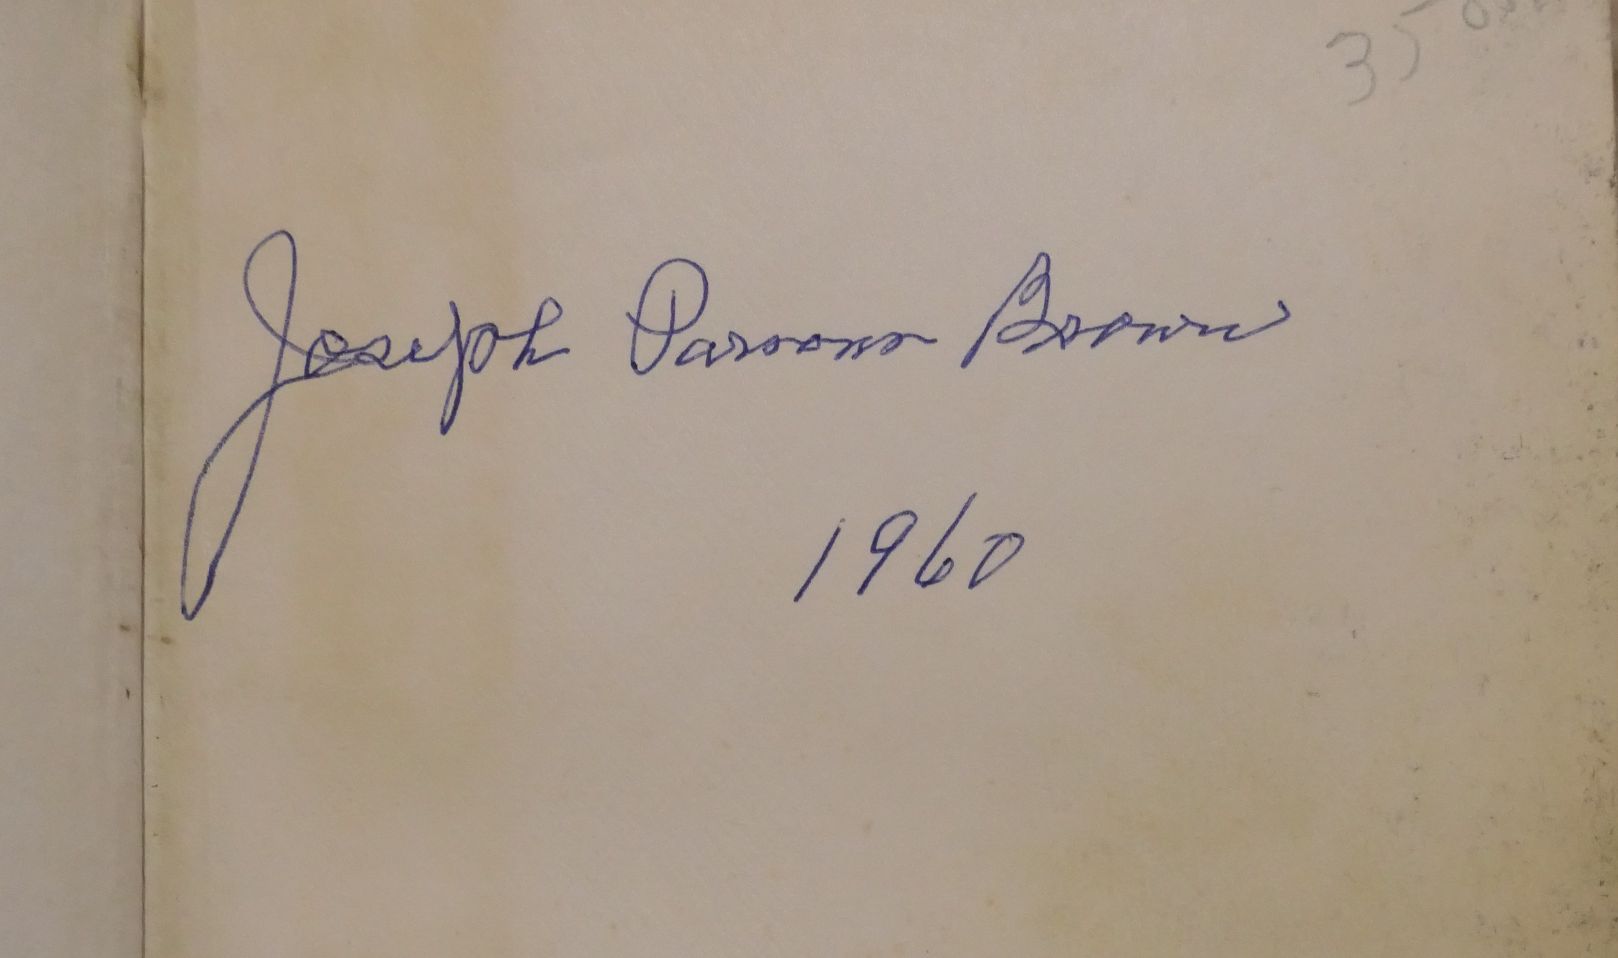 35
Joseph Parsons Brown
1960